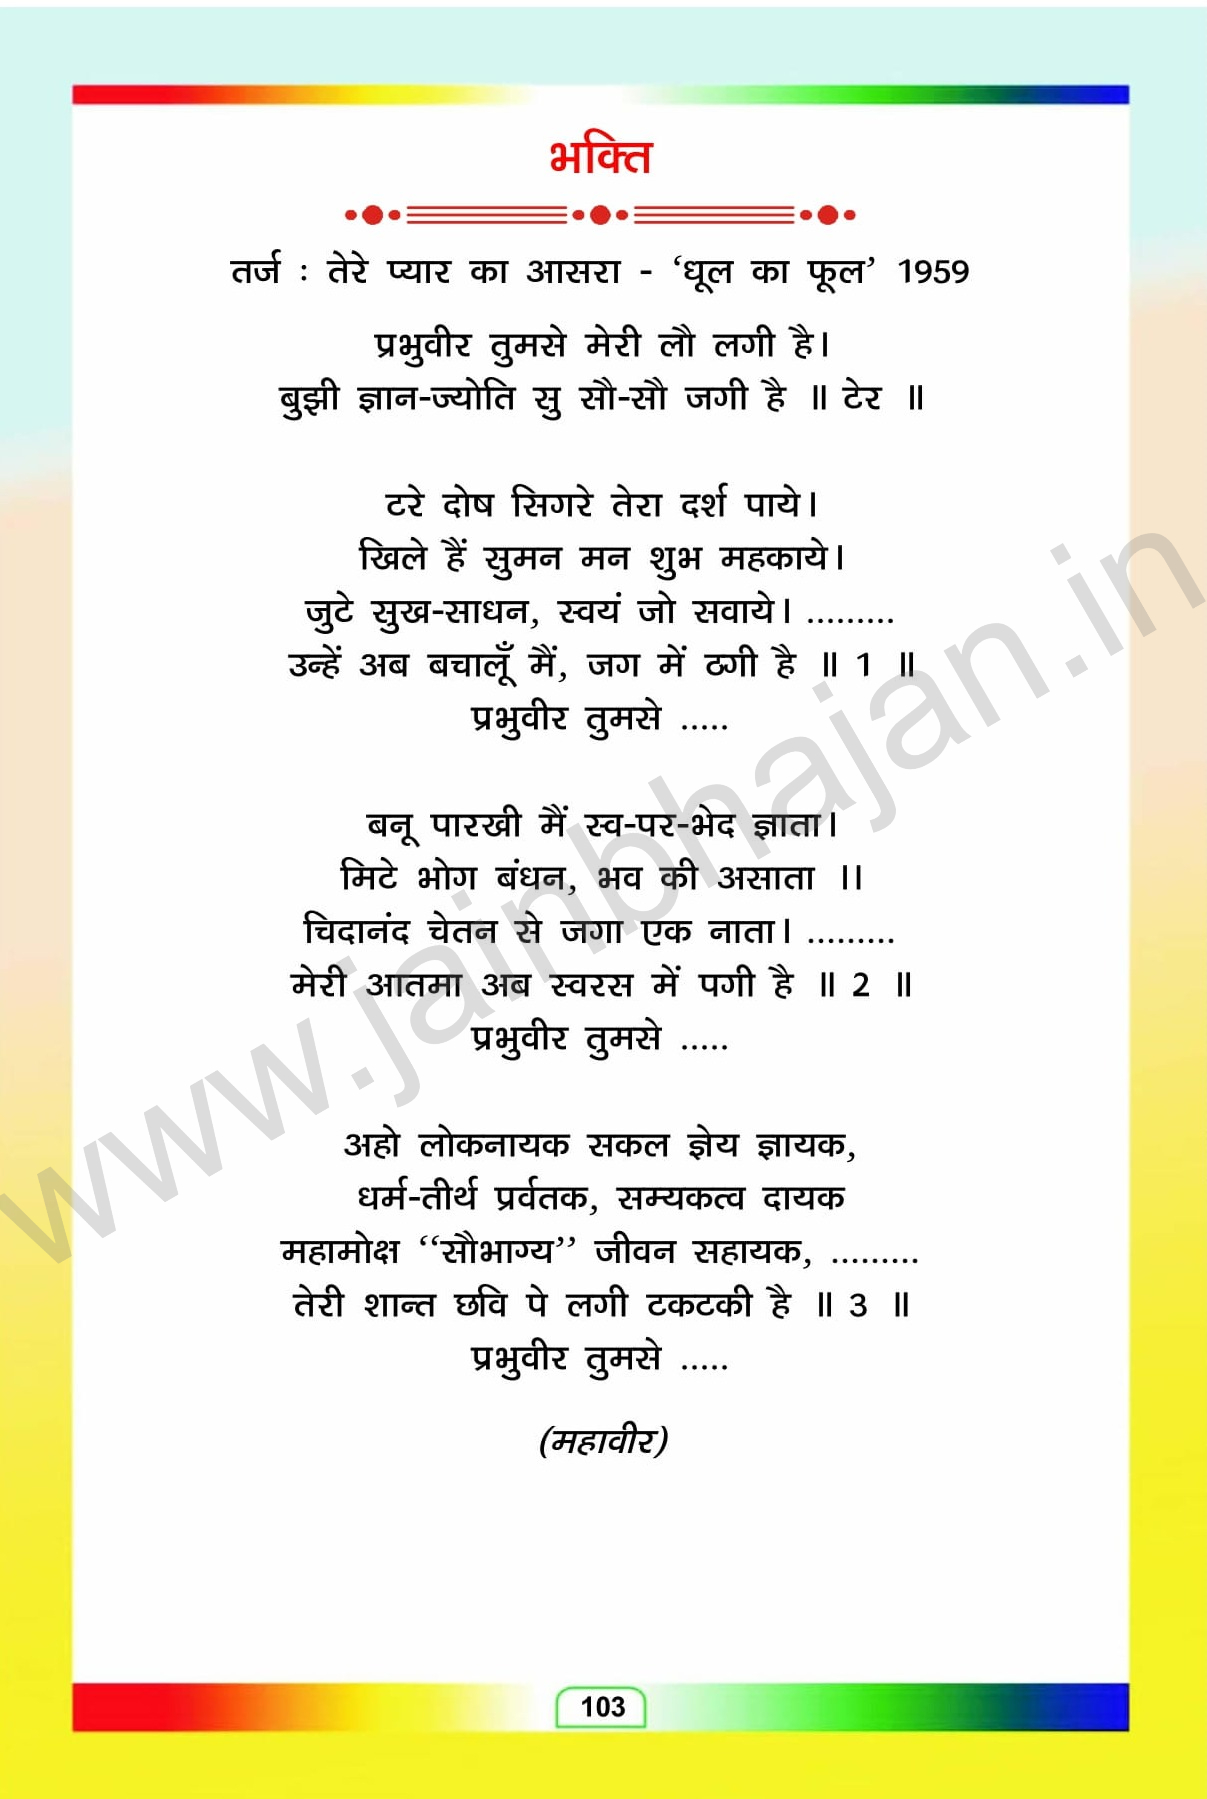 भक्ति
तर्ज : तेरे प्यार का आसरा - ‘धूल का फूल’ 1959
प्रभुवीर तुमसे मेरी लौ लगी है।
बुझी ज्ञान-ज्योति सु सौ-सौ जगी है ॥ टेर ॥
टरे दोष सिगरे तेरा दर्श पाये।
खिले हैं सुमन मन शुभ महकाये।
जुटे सुख-साधन, स्वयं जो सवाये। .........
उन्हें अब बचालूँ मैं, जग में ठगी है ॥ 1 ॥
प्रभुवीर तुमसे .....
बनू पारखी मैं स्व-पर-भेद ज्ञाता।
मिटे भोग बंधन, भव की असाता ।।
चिदानंद चेतन से जगा एक नाता। .........
मेरी आतमा अब स्वरस में पगी है ॥ 2 ॥
प्रभुवीर तुमसे .....
अहो लोकनायक सकल ज्ञेय ज्ञायक,
धर्म-तीर्थ प्रर्वतक, सम्यकत्व दायक
महामोक्ष ‘‘सौभाग्य’’ जीवन सहायक, .........
तेरी शान्त छवि पे लगी टकटकी है ॥ 3 ॥
प्रभुवीर तुमसे .....
(महावीर)
103
www.jainbhajan.in